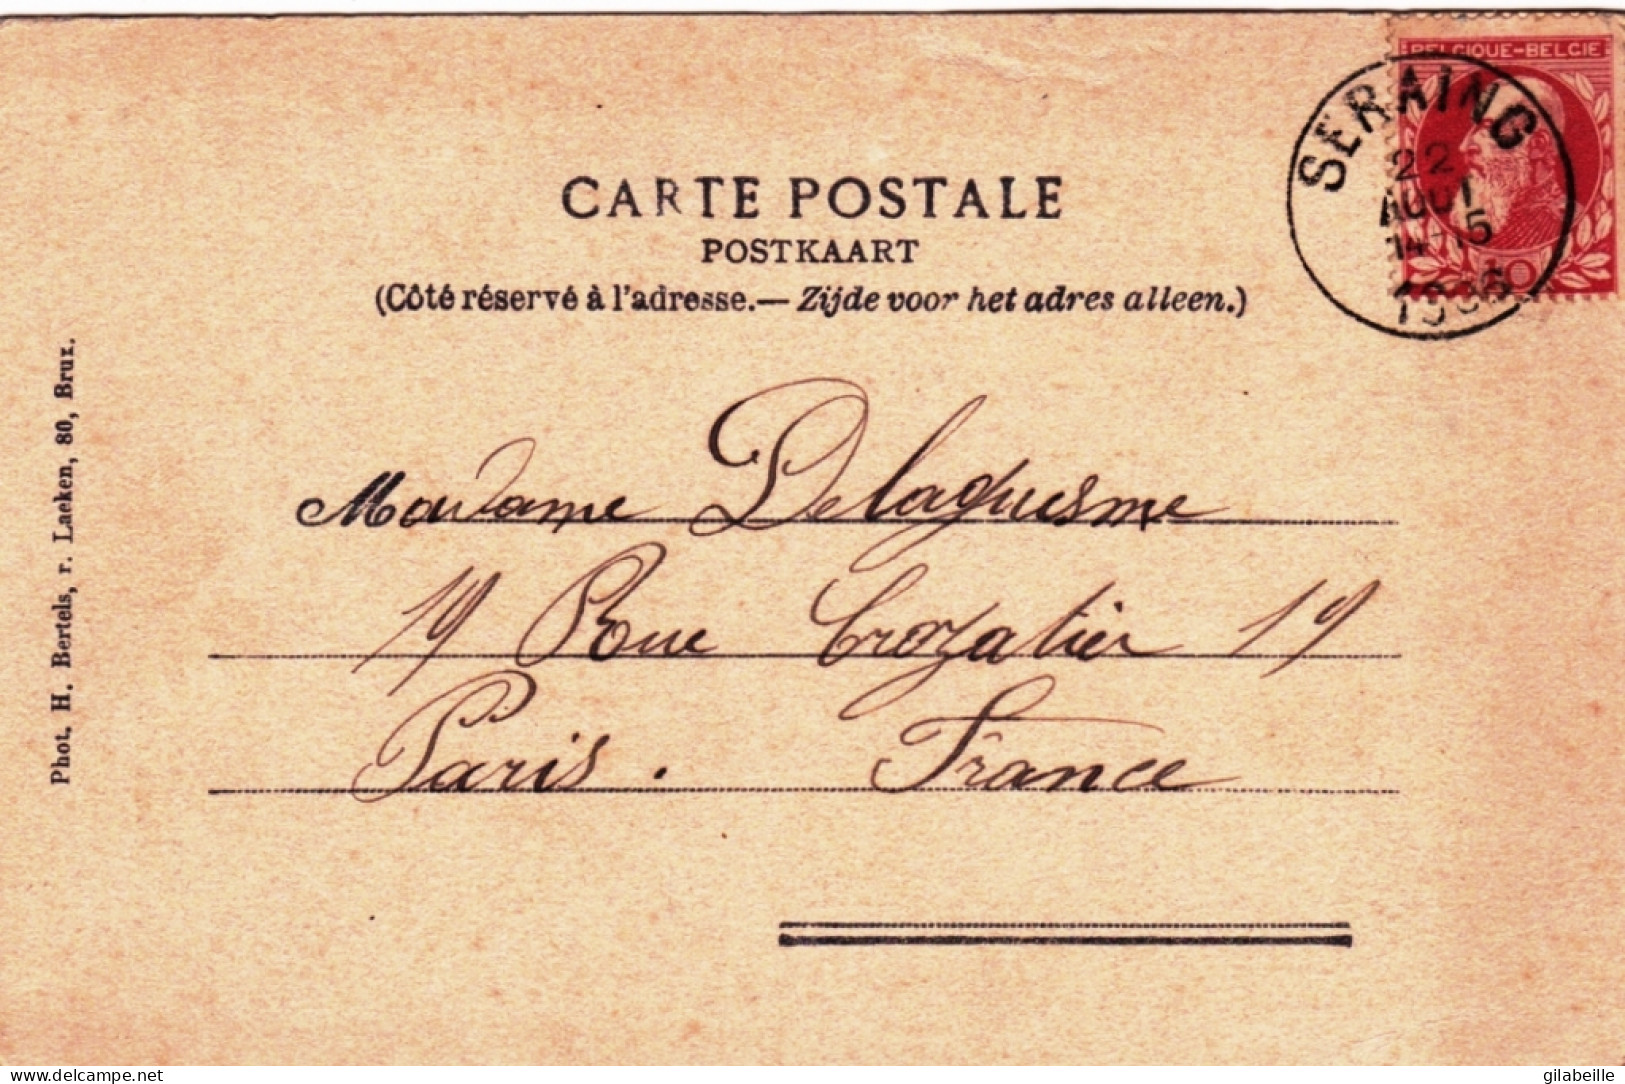 BELGIQUE-BELGIE
SERAING
22
AOUT
14-15
10
CARTE POSTALE
POSTKAART
(Côté réservé à l'adresse.— Zijde voor het adres alleen.)
Phot. H. Bertels, r. Laeken, 80, Brux.
Madame Delaguesme
19 Rue Crozatier 19
Paris. France
www.delcampe.net
gilabeille